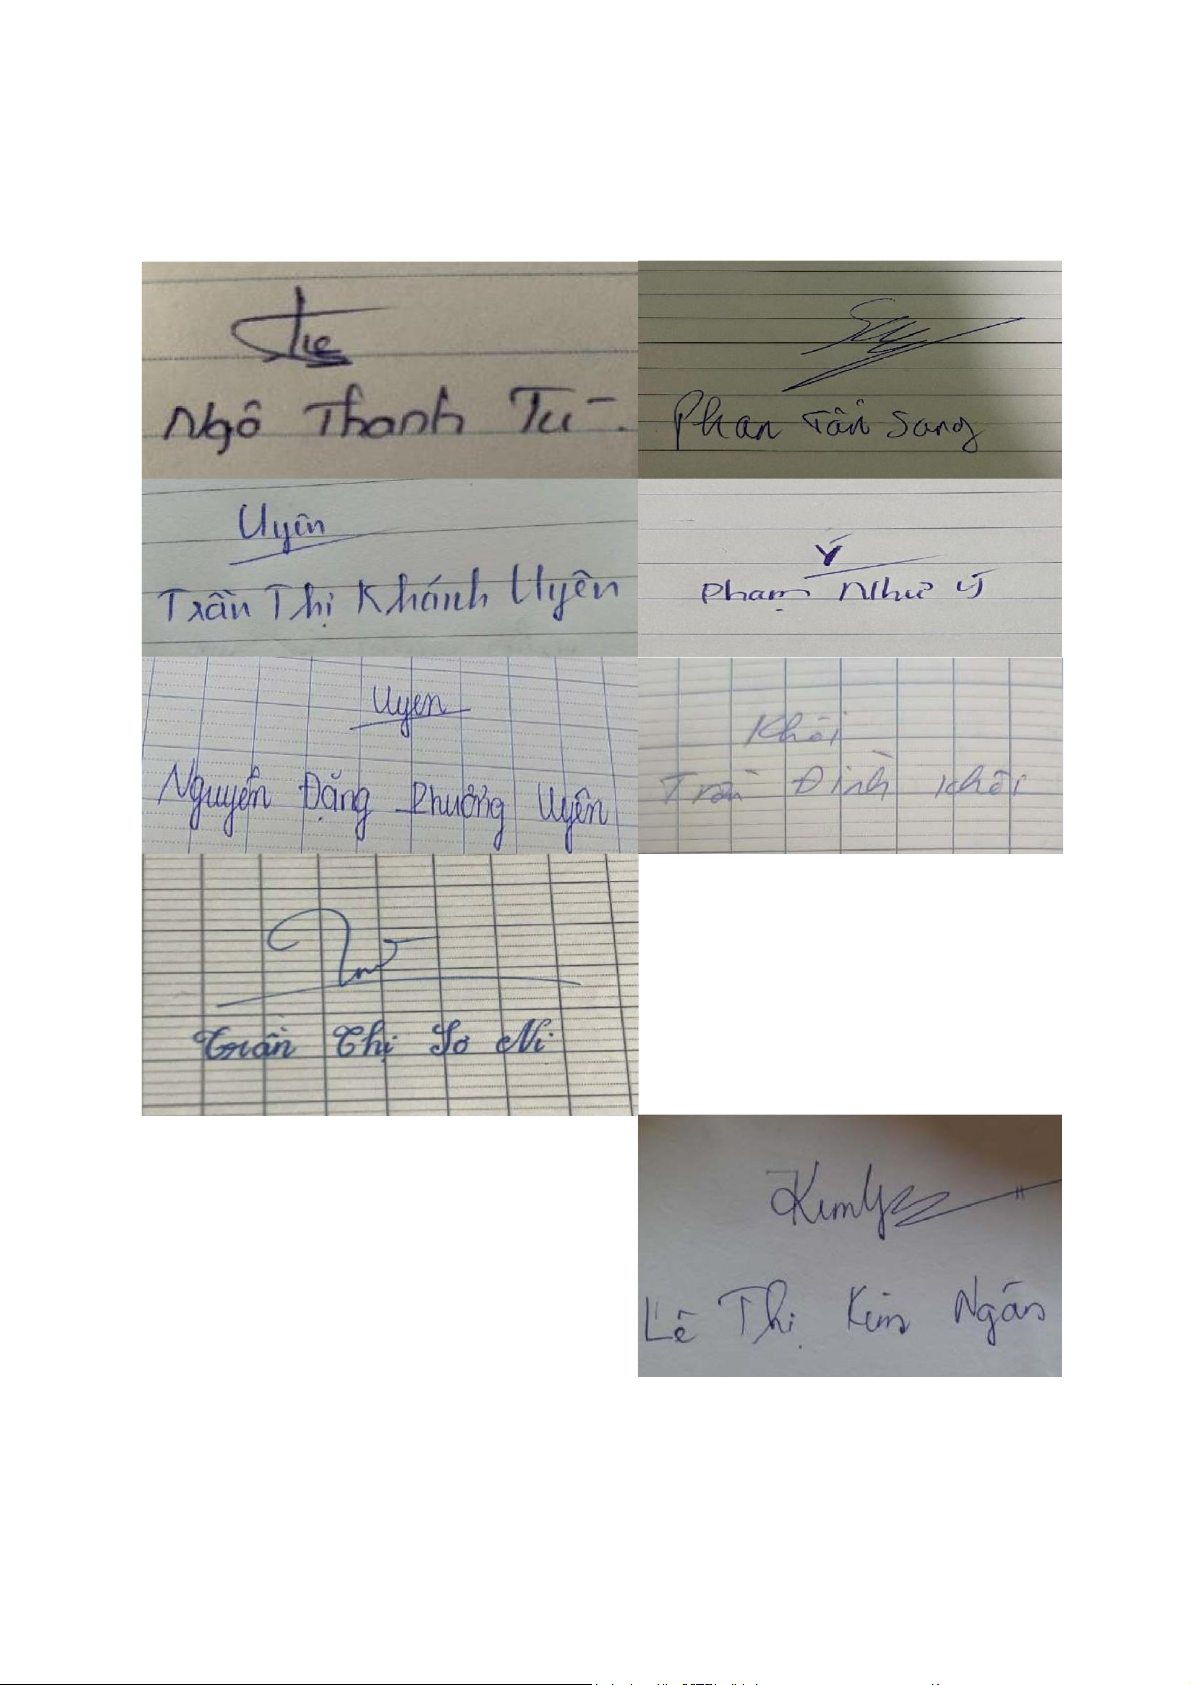 Ngô Thanh Tú.
Phan Tấn Sang
Uyên
Trần Thị Khánh Uyên
Ý
Phạm Như Ý
Uyên
Nguyễn Đặng Phương Uyên
Khôi
Trần Đình Khôi
Trần Thị Sơ Ni
Kim
Lê Thị Kim Ngân